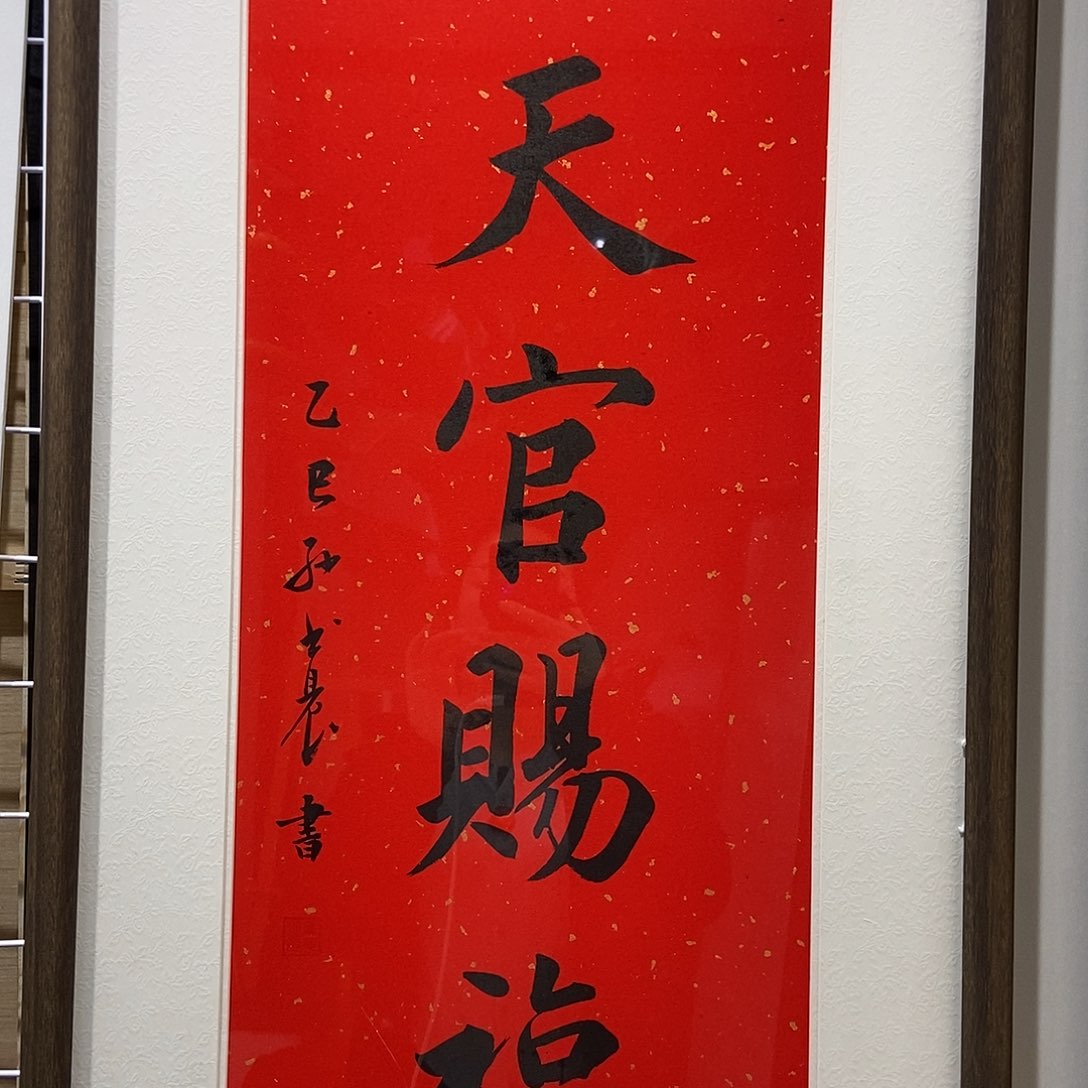 天官賜福
乙巳孙書